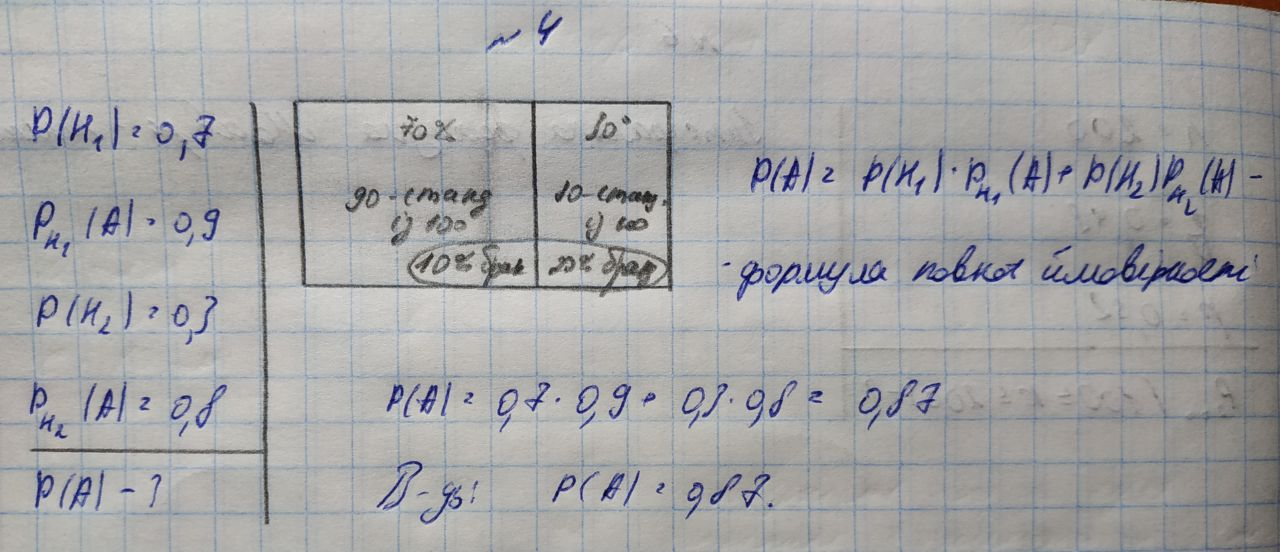 ~ 4
P(H₁) = 0,7
P_H₁(A) = 0,9
P(H₂) = 0,3
P_H₂(A) = 0,8
P(A) - ?
70%
90 - станд
із 100
10% брак
80 - станд.
із 100
20% брак
P(A) = P(H₁) · P_H₁(A) + P(H₂) P_H₂(A) -
- формула повної ймовірності
P(A) = 0,7 · 0,9 + 0,3 · 0,8 = 0,87
В-дь: P(A) = 0,87.